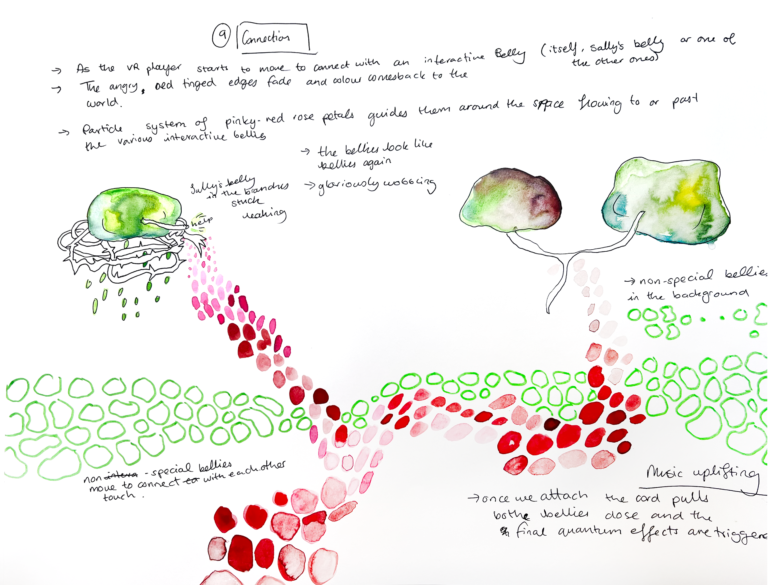 9 Connection
→ As the VR player starts to move to connect with an interactive Belly (itself, Sally's belly or one of
the other ones)
→ The angry, red tinged edges fade and colour comesback to the
world.
→ Particle system of pinky-red rose petals guides them around the space flowing to or past
the various interactive bellies
→ the bellies look like
bellies again
→ gloriously wobbling
Sally's belly
in the branches
stuck
leaking
help
→ non-special bellies
in the background
non - special bellies
move to connect with each other
touch.
Music uplifting
→ once we attach the cord pulls
bothe bellies close and the
final quantum effects are triggered